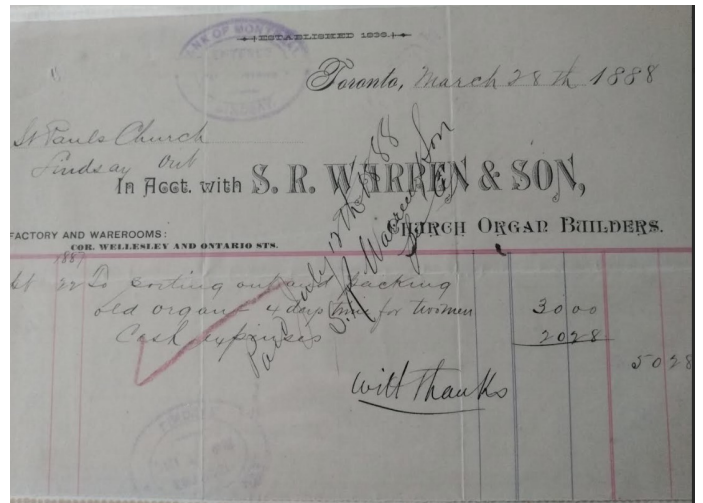 ESTABLISHED 1836.
BANK OF MONTREAL
LINDSAY
Toronto, March 28th 1888
St Pauls Church
Lindsay Ont
In Acct. with S. R. WARREN & SON,
CHURCH ORGAN BUILDERS.
FACTORY AND WAREROOMS:
COR. WELLESLEY AND ONTARIO STS.
1887
22 To sorting out and packing
old organ 4 days time for two men 30 00
Cash expenses 20 28
50 28
Paid July 12th 1888
S. R. Warren & Son
With Thanks